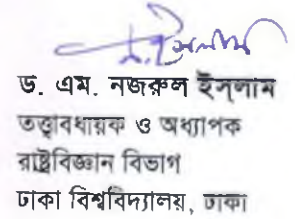 ড. এম. নজরুল ইসলাম
তত্ত্বাবধায়ক ও অধ্যাপক
রাষ্ট্রবিজ্ঞান বিভাগ
ঢাকা বিশ্ববিদ্যালয়, ঢাকা